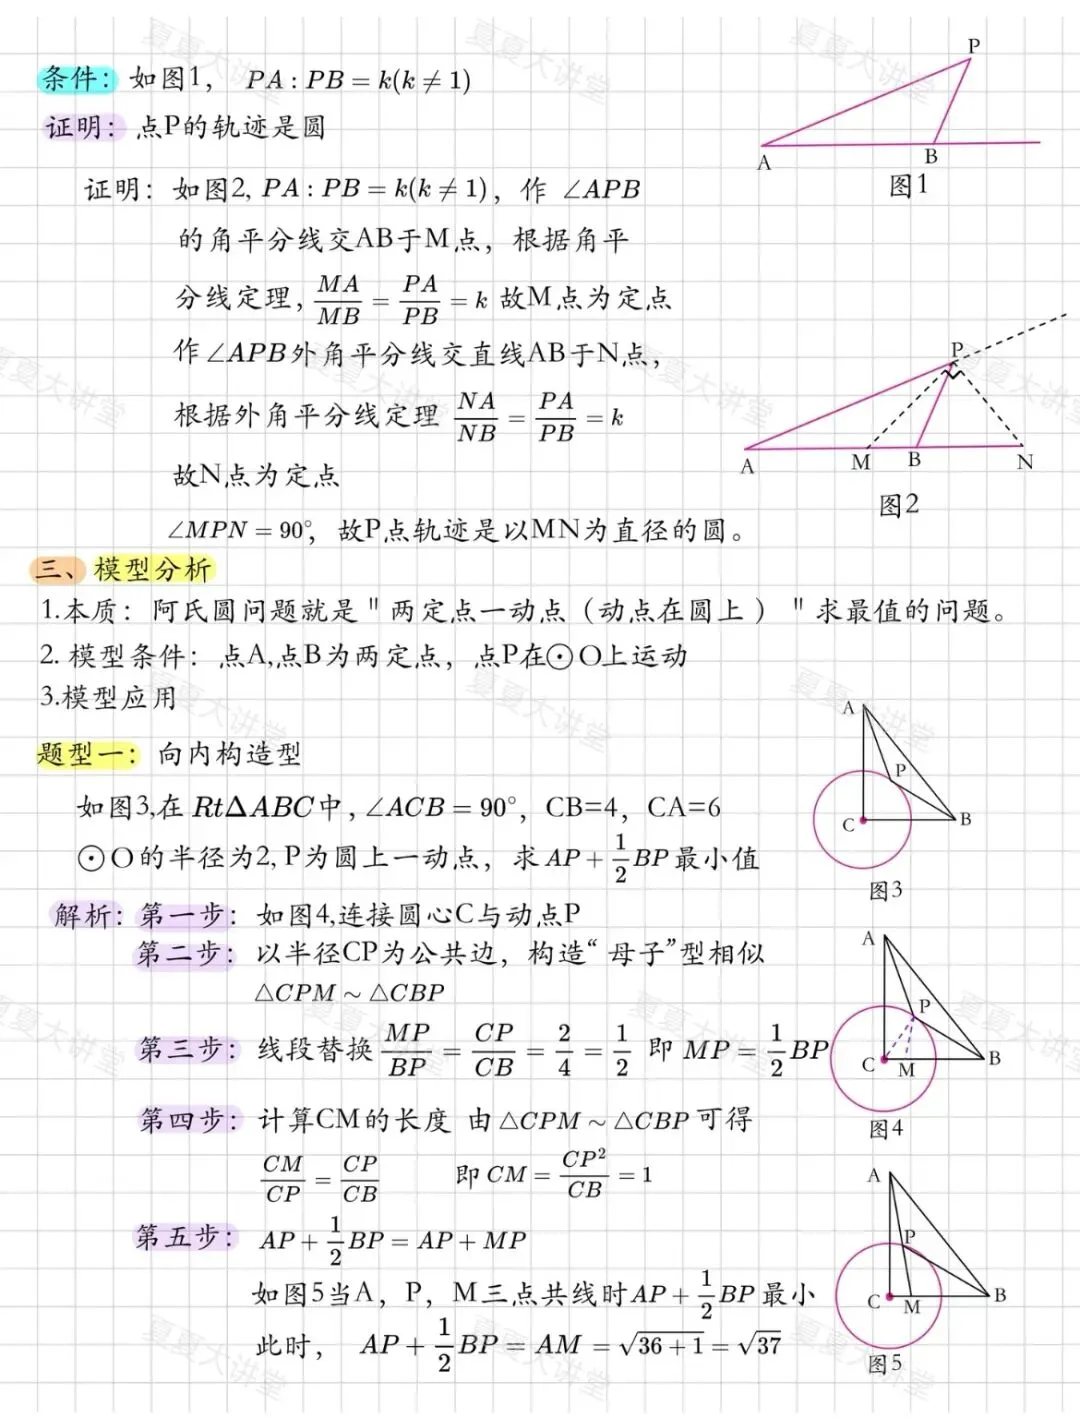 条件：如图1， PA : PB = k(k ≠ 1)
证明：点P的轨迹是圆
P
A
B
图1
证明：如图2, PA : PB = k(k ≠ 1)，作 ∠APB
的角平分线交AB于M点，根据角平
分线定理，MA/MB = PA/PB = k 故M点为定点
作∠APB外角平分线交直线AB于N点，
根据外角平分线定理 NA/NB = PA/PB = k
故N点为定点
∠MPN = 90°，故P点轨迹是以MN为直径的圆。
P
A
M
B
N
图2
三、模型分析
1.本质：阿氏圆问题就是"两定点一动点（动点在圆上）"求最值的问题。
2. 模型条件：点A,点B为两定点，点P在⊙O上运动
3.模型应用
题型一：向内构造型
如图3,在 Rt∆ABC中，∠ACB = 90°，CB=4，CA=6
⊙O的半径为2, P为圆上一动点，求AP + 1/2 BP最小值
A
P
C
B
图3
解析：第一步：如图4,连接圆心C与动点P
第二步：以半径CP为公共边，构造“母子”型相似
△CPM ~ △CBP
第三步：线段替换 MP/BP = CP/CB = 2/4 = 1/2 即 MP = 1/2 BP
A
P
C
M
B
图4
第四步：计算CM的长度 由△CPM ~ △CBP可得
CM/CP = CP/CB 即CM = CP²/CB = 1
第五步：AP + 1/2 BP = AP + MP
如图5当A，P，M三点共线时AP + 1/2 BP最小
此时， AP + 1/2 BP = AM = √36 + 1 = √37
A
P
C
M
B
图5
夏夏大讲堂